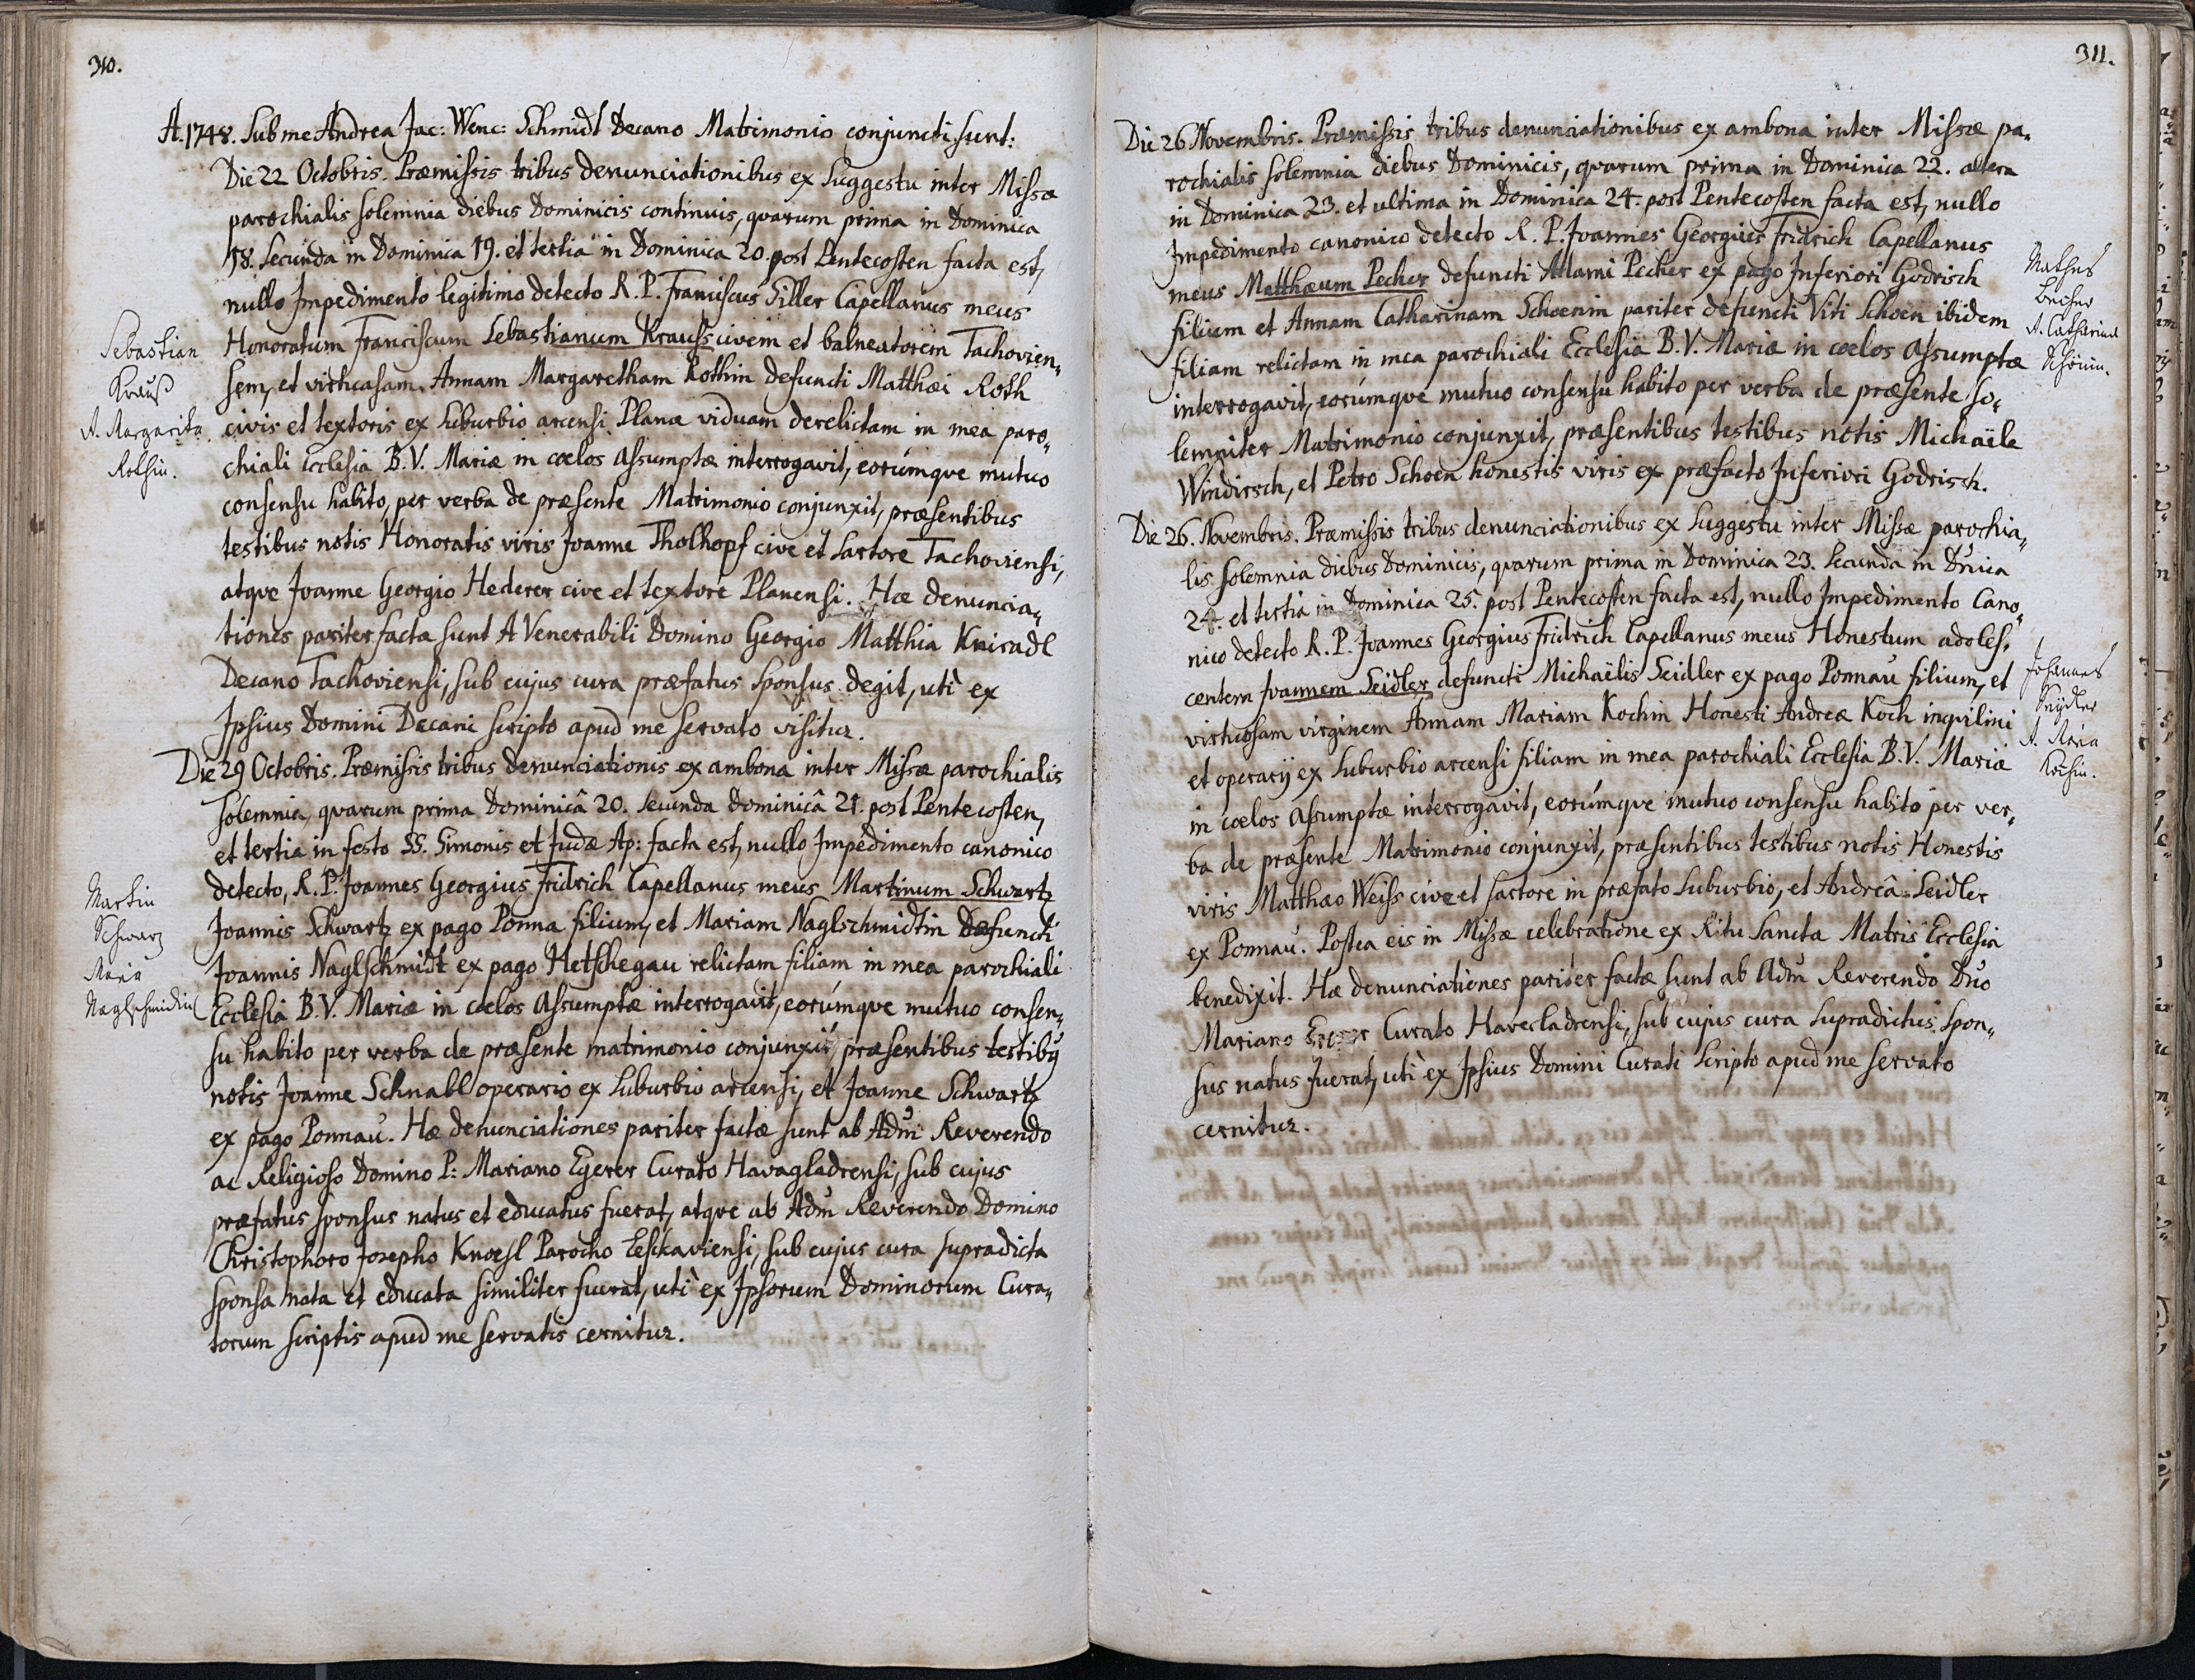 310.
A. 1748. Sub me Andrea Jac: Wenc: Schmidt Decano Matrimonio conjuncti sunt:
Die 22 Octobris. Præmissis tribus denunciationibus ex Suggestu inter Missæ
parochialis solemnia diebus Dominicis continuis, qvarum prima in Dominica
18. Secunda in Dominica 19. et tertia in Dominica 20. post Pentecosten facta est,
nullo Impedimento legitimo detecto R. P. Franciscus Siller Capellanus meus
Honoratum Franciscum Sebastianum Krauss civem et balneatorem Tachovien„
sem, et virtuosam Annam Margaretham Rothin defuncti Matthæi Roth
civis et textoris ex Suburbio arcensi Planæ viduam derelictam in mea paro„
chiali Ecclesia B. V. Mariæ in cœlos Assumptæ interrogavit, eorúmqve mutuo
consensu habito, per verba de præsente Matrimonio conjunxit, præsentibus
testibus notis Honoratis viris Joanne Tholhopf cive et Sartore Tachoviensi,
atqve Joanne Georgio Hederer cive et textore Planensi. Hæ denuncia„
tiones pariter factæ sunt A Venerabili Domino Georgio Matthia Kniradl
Decano Tachoviensi, sub cujus cura præfatus Sponsus degit, utì ex
Ipsius Domini Decani scripto apud me servato visitur.
Sebastian
Krauß
A. Margarita
Rothin.
Die 29 Octobris. Præmissis tribus denunciationis ex ambona inter Missæ parochialis
solemnia, qvarum prima Dominicâ 20. secunda Dominicâ 21. post Pentecosten,
et tertia in festo SS. Simonis et Judæ Ap: facta est, nullo Impedimento canonico
detecto, R. P. Joannes Georgius Fridrich Capellanus meus Martinum Schwartz
Joannis Schwartz ex pago Ponna filium, et Mariam Naglschmidtin Defuncti
Joannis Naglschmidt ex pago Hetschegau relictam filiam in mea parochiali
Ecclesia B. V. Mariæ in cœlos Assumptæ interrogavit, eorúmqve mutuo consen„
su habito per verba de præsente matrimonio conjunxit, præsentibus testibus
notis Joanne Schnabl operario ex Suburbio arcensi, et Joanne Schwartz
ex pago Ponnau. Hæ denunciationes pariter factæ sunt ab Adm Reverendo
ac Religioso Domino P: Mariano Egerer Curato Havagladrensi, sub cujus
præfatus sponsus natus et educatus fuerat, atqve ab Adm Reverendo Domino
Christophoro Josepho Knoesl Parocho Leskaviensi, sub cujus cura supradicta
sponsa nata et educata similiter fuerat, utì ex Ipsorum Dominorum Cura„
torum scriptis apud me servatis cernitur.
Martin
Schwarz
Maria
Naglschmidin
311.
Die 26 Novembris. Præmissis tribus denunciationibus ex ambona inter Missæ pa„
rochialis solemnia diebus Dominicis, qvarum prima in Dominica 22. altera
in Dominica 23. et ultima in Dominica 24. post Pentecosten facta est, nullo
Impedimento canonico detecto R. P. Joannes Georgius Fridrich Capellanus
meus Matthæum Pecher defuncti Adami Pecher ex pago Inferiori Godrisch
filium et Annam Catharinam Schoenin pariter defuncti Viti Schoen ibidem
filiam relictam in mea parochiali Ecclesia B. V. Mariæ in cœlos Assumptæ
interrogavit, eorúmqve mutuo consensu habito per verba de præsente so„
lemniter Matrimonio conjunxit, præsentibus testibus notis Michaële
Windirsch, et Petro Schoen honestis viris ex præfacto Inferiori Godrisch.
A. Catharina
Schönin.
Die 26. Novembris. Præmissis tribus denunciationibus ex Suggestu inter Missæ parochia„
lis solemnia diebus Dominicis, qvarum prima in Dominica 23. Secunda in Dnica
24. et tertia in Dominica 25. post Pentecosten facta est, nullo Impedimento Cano„
nico detecto R. P. Joannes Georgius Fridrich Capellanus meus Honestum adoles„
centem Joannem Seidler defuncti Michaëlis Seidler ex pago Ponnau filium, et
virtuosam virginem Annam Mariam Kochin Honesti Andreæ Koch inqvilini
et operarij ex Suburbio arcensi filiam in mea parochiali Ecclesia B. V. Mariæ
in cœlos Assumptæ interrogavit, eorúmqve mutuo consensu habito per ver„
ba de præsente Matrimonio conjunxit, præsentibus testibus notis Honestis
viris Matthæo Weiss cive et sartore in præfato Suburbio, et Andreâ Seidler
ex Ponnau. Postea eis in Missæ celebratione ex Ritu Sanctæ Matris Ecclesiæ
benedixit. Hæ denunciationes pariter factæ sunt ab Adm Reverendo Dno
Mariano Curato Havecladrensi, sub cujus cura supradictus spon„
sus natus fuerat, utì ex Ipsius Domini Curati Scripto apud me servato
cernitur.
Johannes
Seydler
A. Maria
Kochin.